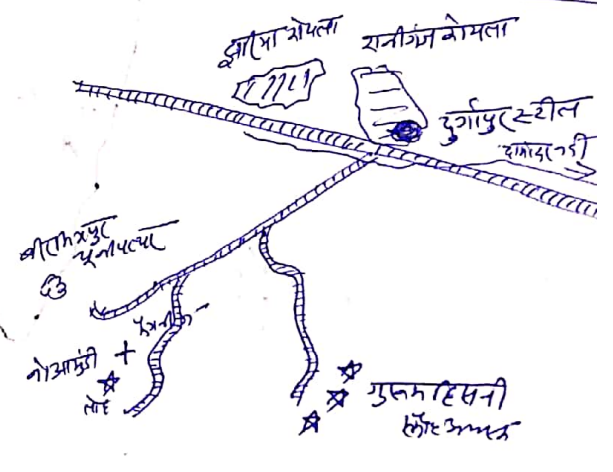 झरिया कोयला
रानीगंज कोयला
दुर्गापुर स्टील
दामोदर नदी
बीरमित्रपुर
चूना पत्थर
नोआमुंडी
लोह
गुरुमहिसनी
लौह अयस्क